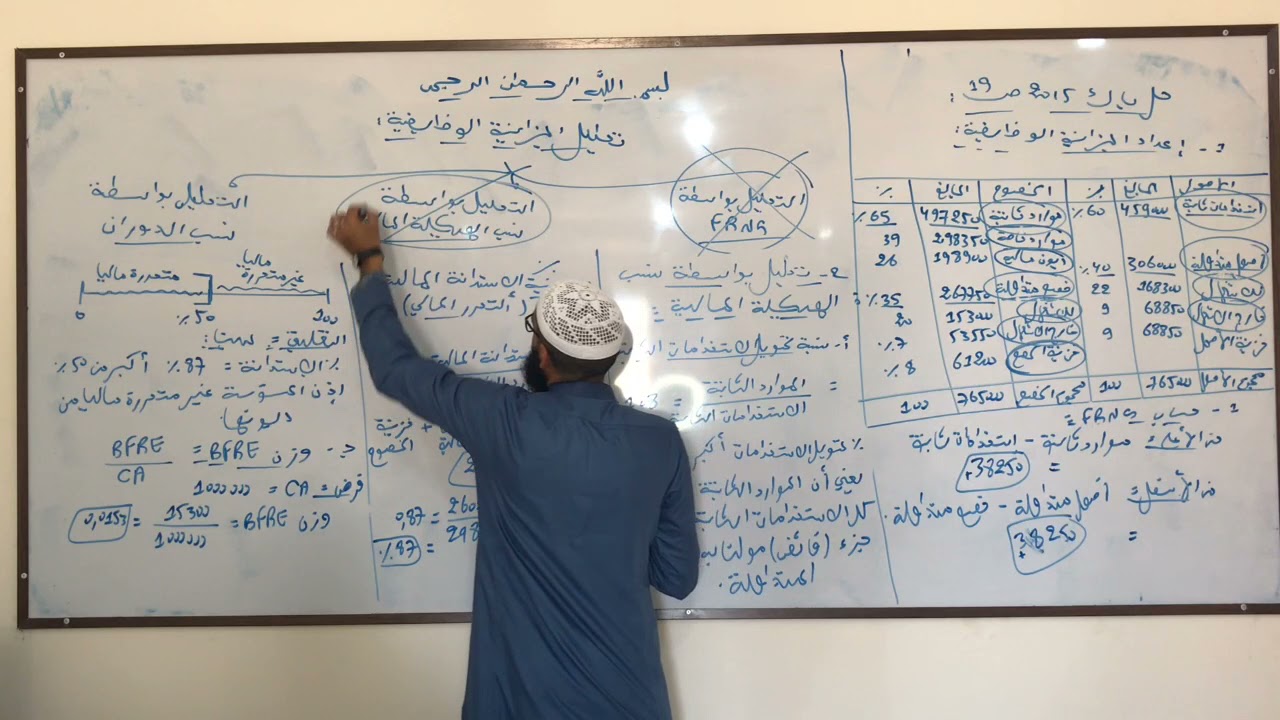 بسم الله الرحمان الرحيم
تحليل الميزانية الوظيفية:
التحليل بواسطة
FRNG
التحليل بواسطة
نسب الهيكلة
التحليل بواسطة
نسب الدوران
حل باك 2015 ص 19:
1- إعداد الميزانية الوظيفية:
الأصول المبالغ % الخصوم المبالغ %
استخدامات ثابتة 459000 %60 موارد ثابتة 497250 %65
موارد خاصة 298350 39
أصول متداولة 306000 %40 ديون مالية 198900 26
للاستغلال 168300 22 خصوم متداولة 267750 %35
خارج الاستغلال 68850 9 للاستغلال 153000 20
خزينة الأصول 68850 9 خارج الاستغلال 53550 %7
خزينة الخصوم 61200 %8
مجموع الأصول 765000 100 مجموع الخصوم 765000 100
1- حساب FRNG =
من الأعلى = موارد ثابتة - استخدامات ثابتة
= +38250
من الأسفل = أصول متداولة - خصوم متداولة.
= +38250
2- تحليل بواسطة نسب
الهيكلة المالية =
أ- نسبة تمويل الاستخدامات
= الموارد الثابتة
الاستخدامات
% تمويل الاستخدامات أكبر
يعني أن الموارد الثابتة
كل الاستخدامات الثابتة
جزء (فائض) مولنا به
المتداولة.
نسبة الاستدانة المالية
(التحرر المالي)
+ خزينة
الخصوم
0,87 =
%87 =
غير متحررة ماليا
متحررة ماليا
0 %50 100
التعليق = لدينا:
% الاستدانة = 87% أكبر من 50%
إذن المؤسسة غير متحررة ماليا من
ديونها
ج- وزن BFRE = BFRE
CA
فرض = CA = 1000000
وزن BFRE = 15300 = 0,0153
1000000